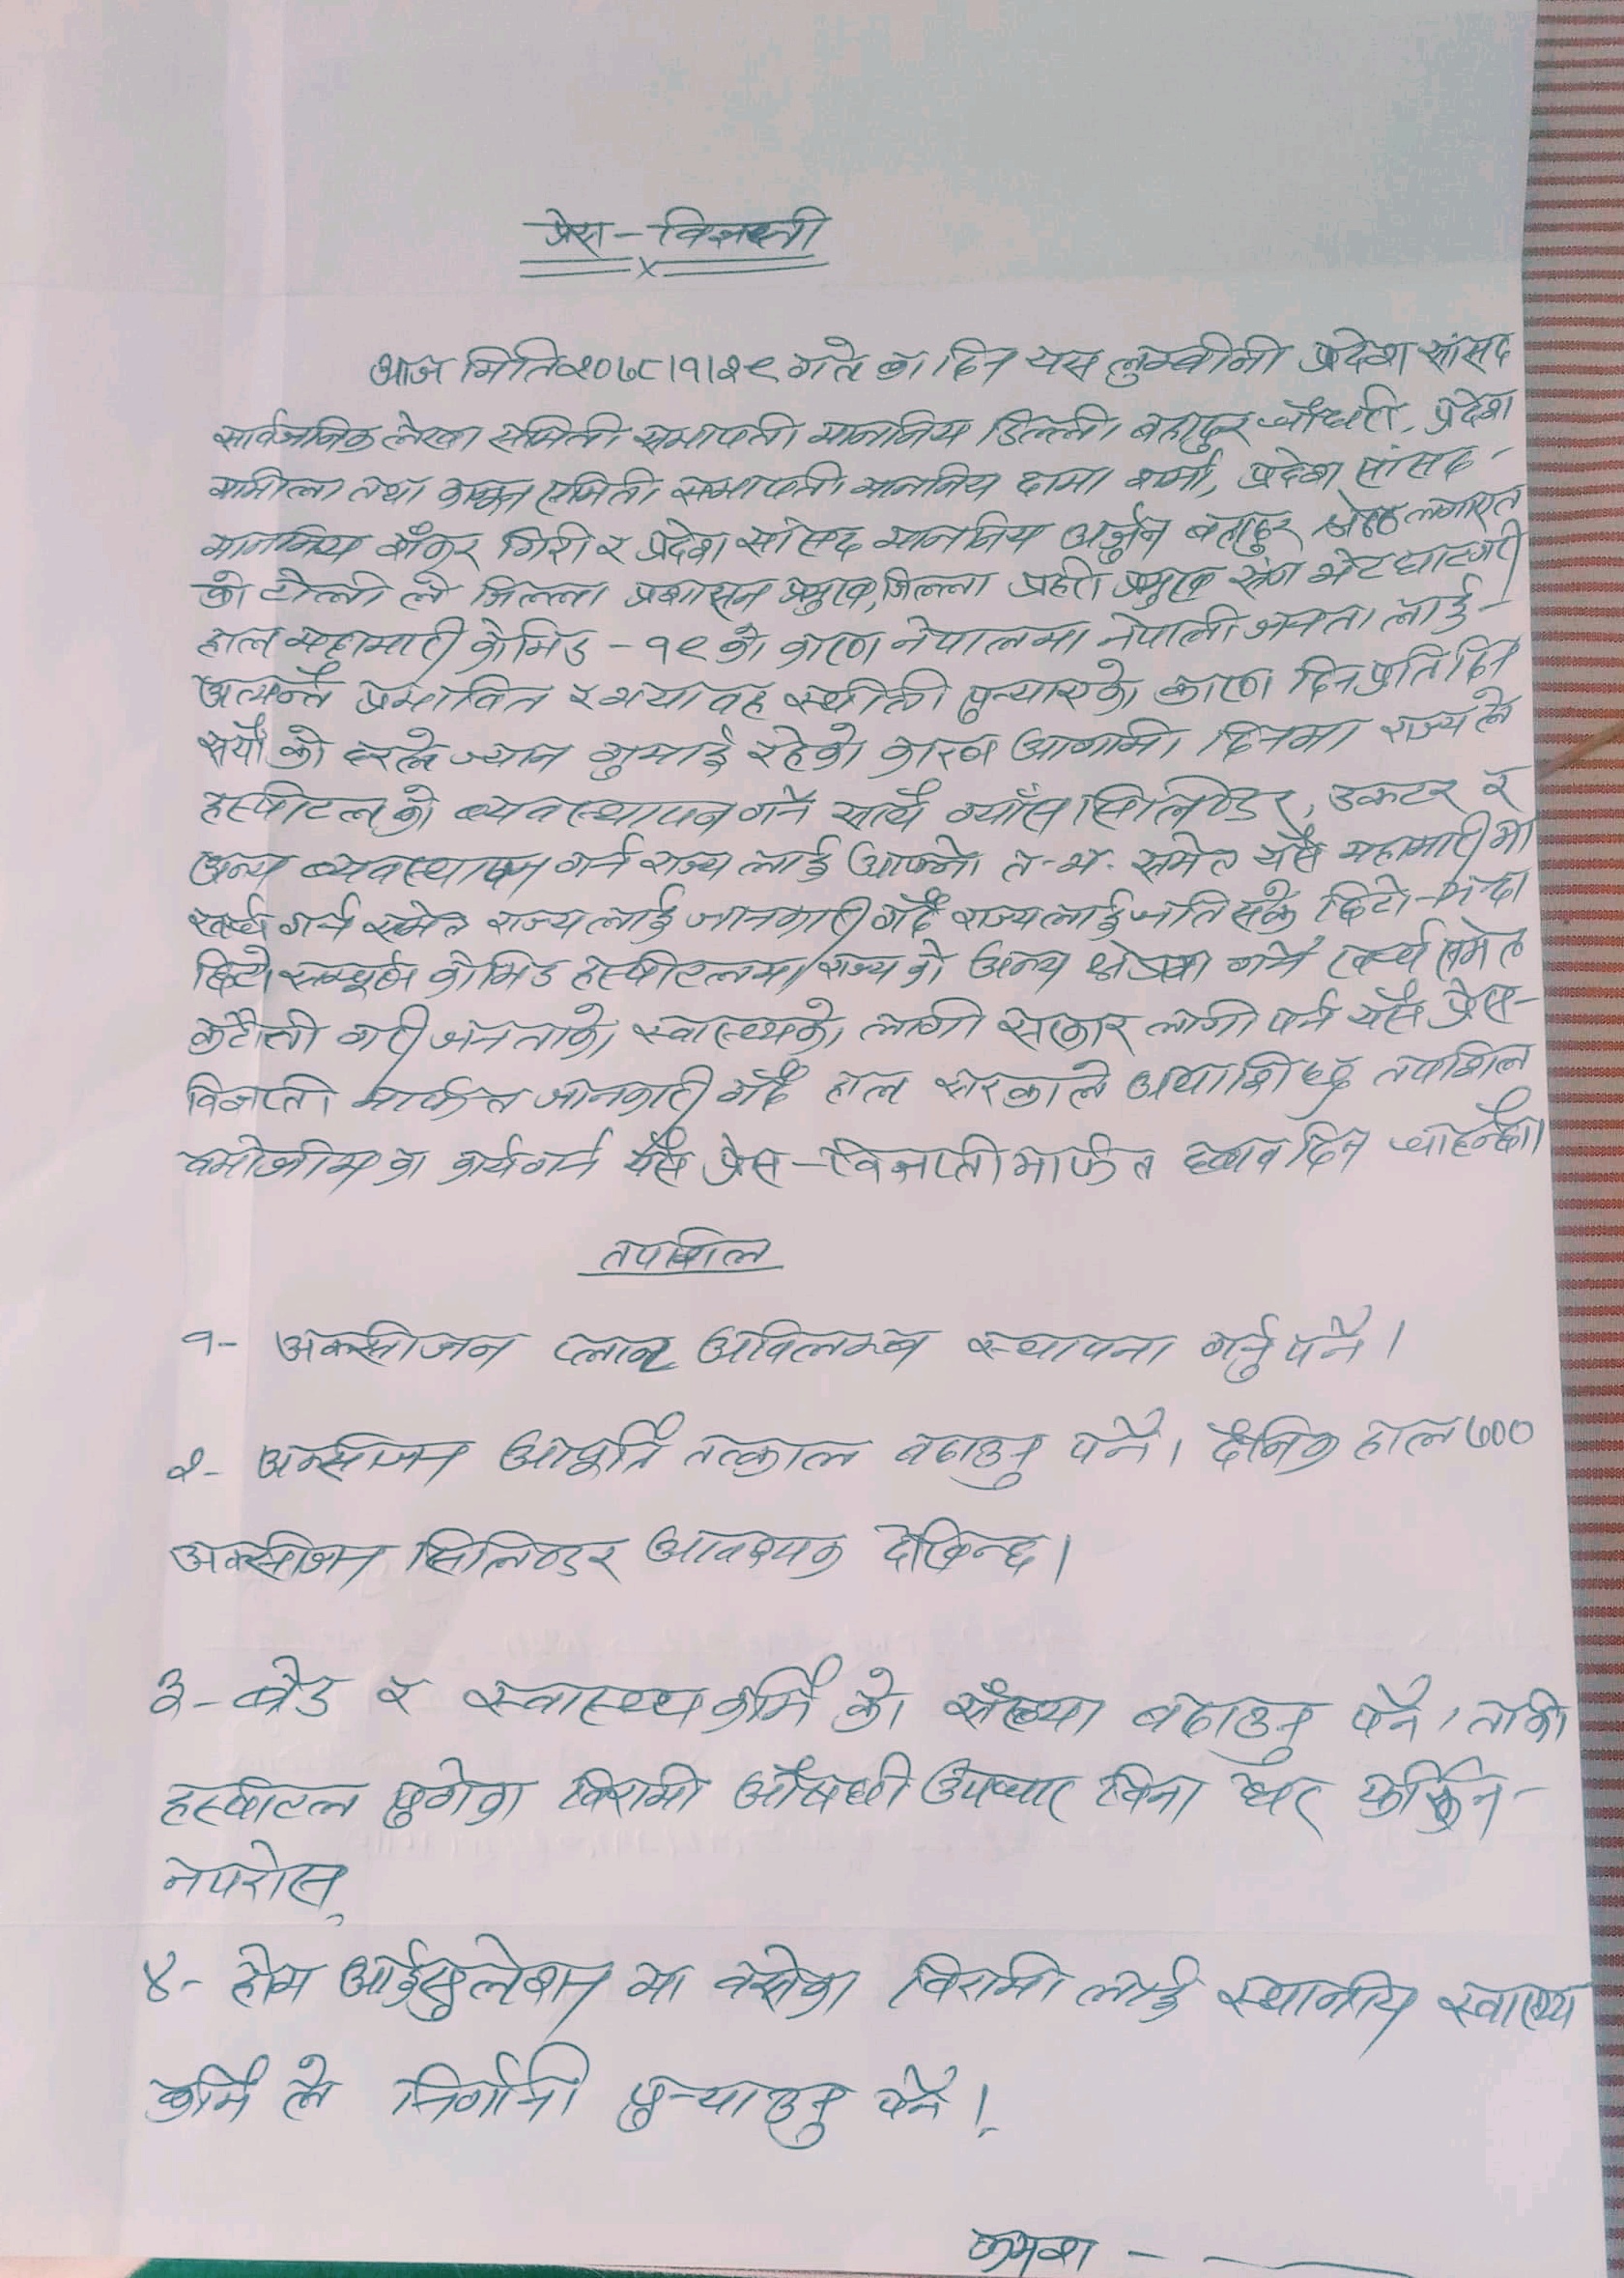 प्रेस - विज्ञप्ती
x
आज मिति २०७८।१।२९ गते का दिन यस लुम्वीनी प्रदेश सांसद
सार्वजनिक लेखा समिती सभापती माननिय डिल्ली बहादुर चौधरी, प्रदेश
तथा कानून समिती सभापती माननिय दामा शर्मा, प्रदेश सांसद -
माननिय गिरी र प्रदेश सांसद माननिय अर्जुन बहादुर लगाएत
को टोली ले जिल्ला प्रशासन प्रमुख, जिल्ला प्रहरी प्रमुख संग भेटघाट गरी
हाल महामारी कोभिड - १९ को कारण नेपालमा नेपाली जनता लाई -
अत्यन्तै प्रभावित र भयावह स्थीती पुर्‍याएको कारण दिन प्रति दिन
सयौं को दरले ज्यान गुमाई रहेको कारण आगामी दिनमा राज्य ले
हस्पीटल को व्यवस्थापन गर्न साथै ग्याँस सिलिण्डर, डक्टर र
अन्य व्यवस्थापन गर्न राज्य लाई आफ्नो त-भ. समेत यस महामारी मा
खर्च गर्न समेत राज्य लाई जानकारी गर्दै राज्य लाई जति सके छिटो - भन्दा
छिटो सम्पूर्ण कोभिड हस्पीटलमा राज्य को अन्य क्षेत्रमा गर्ने खर्च समेत
कटौती गरी जनताको स्वास्थ्यको लागी सरकार लागी पर्न यस प्रेस -
विज्ञप्ती मार्फत जानकारी गर्दै हाल सरकारले तपशिल
वमोजीम का कार्य गर्न यस प्रेस - विज्ञप्ती मार्फत दवाव दिन चाहन्छौ।
तपशिल
१- अक्सीजन प्लान्ट अविलम्ब स्थापना गर्नु पर्ने।
२- अक्सीजन आपूर्ति तत्काल बढाउनु पर्ने। दैनिक हाल ७००
अक्सीजन सिलिण्डर आवश्यक देखिन्छ।
३- बेड र स्वास्थ्य कर्मि को संख्या बढाउनु पर्ने, ताकी
हस्पीटल पुगेका विरामी औषधी उपचार विना घर फर्किन -
नपरोस्
४- होम आईसुलेशन मा वसेका विरामी लाई स्थानीय स्वास्थ्य
कर्मि ले निगरानी पुर्‍याउनु पर्ने।
क्रमश - -